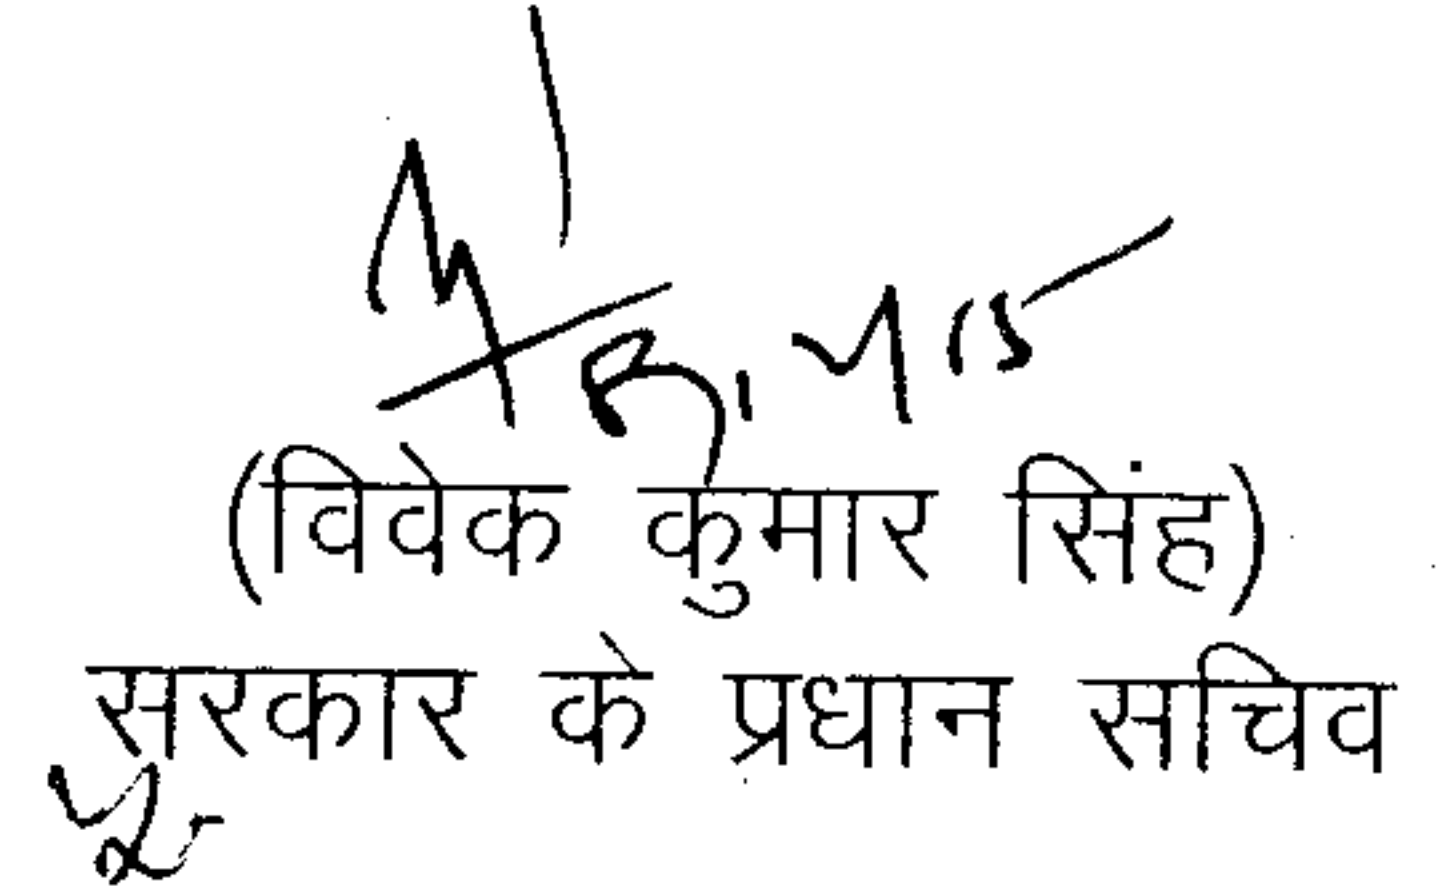 (विवेक कुमार सिंह)
सरकार के प्रधान सचिव